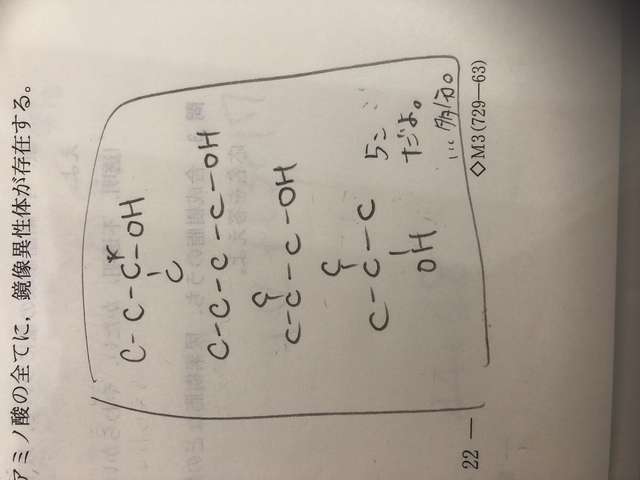 アミノ酸の全てに，鏡像異性体が存在する。
C-C-C*-OH
C
C-C-C-C-OH
C
C-C-C-OH
C
C-C-C
OH
5こ
だよ。
多分。
22 — ◇M3(729—63)